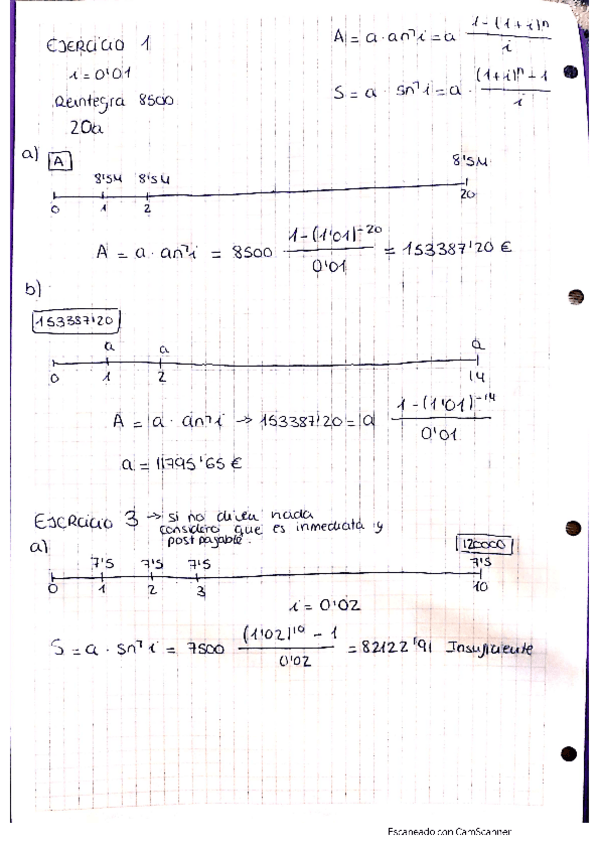 EJERCICIO 1
A = a · an⌝i = a (1 - (1+i)ⁿ) / i
i = 0'01
Reintegra 8500
S = a · sn⌝i = a · ((1+i)ⁿ - 1) / i
20a
a) A
8'5M 8'5M 8'5M
0 1 2 20
A = a · an⌝i = 8500 (1 - (1'01)⁻²⁰) / 0'01 = 153387'20 €
b)
153387'20
a a a
0 1 2 14
A = a · an⌝i → 153387'20 = a (1 - (1'01)⁻¹⁴) / 0'01
a = 11795'65 €
EJERCICIO 3 → si no dicen nada
considero que es inmediata y
postpagable.
a) 120000
7'5 7'5 7'5 7'5
0 1 2 3 10
i = 0'02
S = a · sn⌝i = 7500 ((1'02)¹⁰ - 1) / 0'02 = 82122'91 Insuficiente
Escaneado con CamScanner